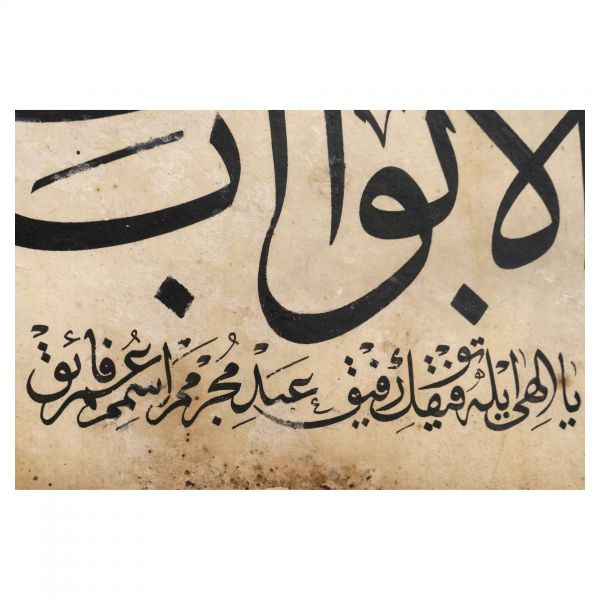 الابواب
يا الهى ايله توفيقك رفيق عبد مجرمم اسمم عمر فائق